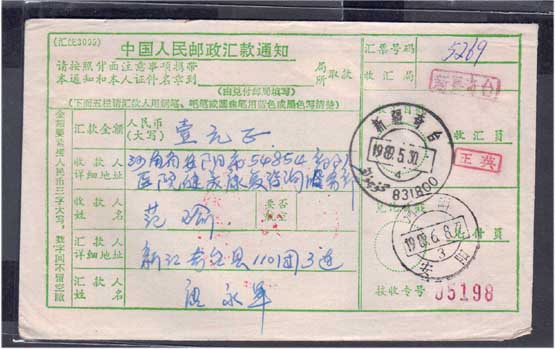 (汇优3005)
中国人民邮政汇款通知
汇票号码
5269
请按照付面注意事项携带
本通知和本人证件名章到
局
所
取款
收汇局
新疆奇台
(由兑付邮局填写)
(下面五栏请汇款人用钢笔、毛笔或圆珠笔用蓝色或黑色写清楚)
汇款金额
人民币
(大写)
壹元正
新疆奇台
1989.5.30
4
831800
收汇员
王英
收款人
详细地址
54854部队
医院健康咨询服务部
收款人
姓名
范
是否
航空
汇款人
详细地址
新江奇台县110团3连
1989.6.8
3
兑付员
汇款人
姓名
永
接收专号
05198
金额要紧接人民币三字大写,数字间不留空隙